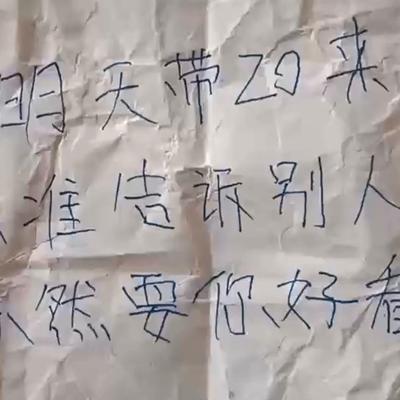 明天带20来
准告诉别人
然要你好看